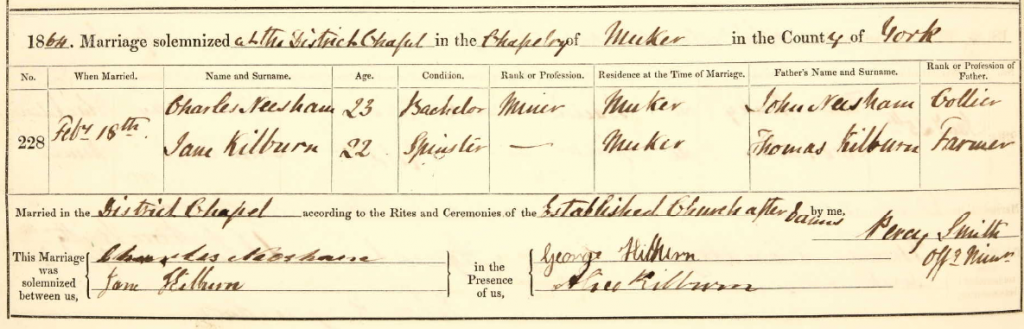 1864. Marriage solemnized at the District Chapel in the Chapelry of Muker in the County of York
No. When Married. Name and Surname. Age. Condition. Rank or Profession. Residence at the Time of Marriage. Father's Name and Surname. Rank or Profession of Father.
228 Feby 18th. Charles Neesham 23 Bachelor Miner Muker John Neesham Collier
Jane Kilburn 22 Spinster — Muker Thomas Kilburn Farmer
Married in the District Chapel according to the Rites and Ceremonies of the Established Church after Banns by me.
Percy Smith
Offg Minr
This Marriage was solemnized between us, Charles Neesham in the Presence of us, George Kilburn
Jane Kilburn Kilburn